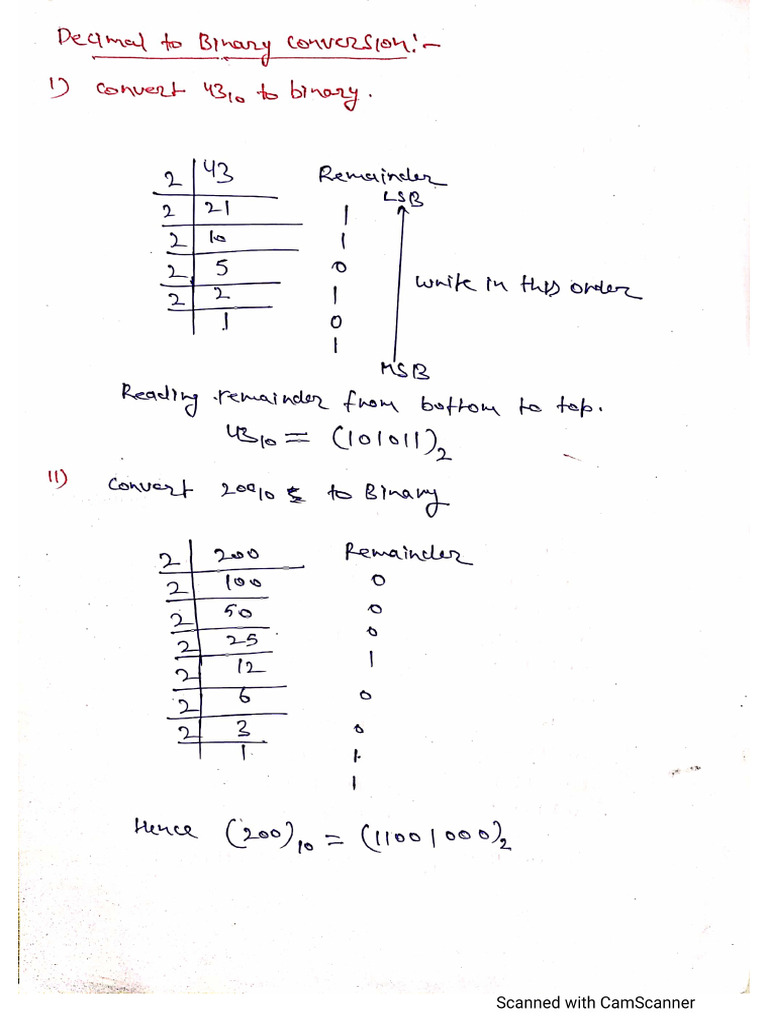 Decimal to Binary conversion:-
I) convert 43₁₀ to binary.
2 | 43 Remainder
LSB
2 | 21 1
2 | 10 1
2 | 5 0
write in this order
2 | 2 1
1 0
1
MSB
Reading remainder from bottom to top.
43₁₀ = (101011)₂
II) convert 200₁₀ to Binary
2 | 200 Remainder
2 | 100 0
2 | 50 0
2 | 25 0
2 | 12 1
2 | 6 0
2 | 3 0
1 1
1
Hence (200)₁₀ = (11001000)₂
Scanned with CamScanner